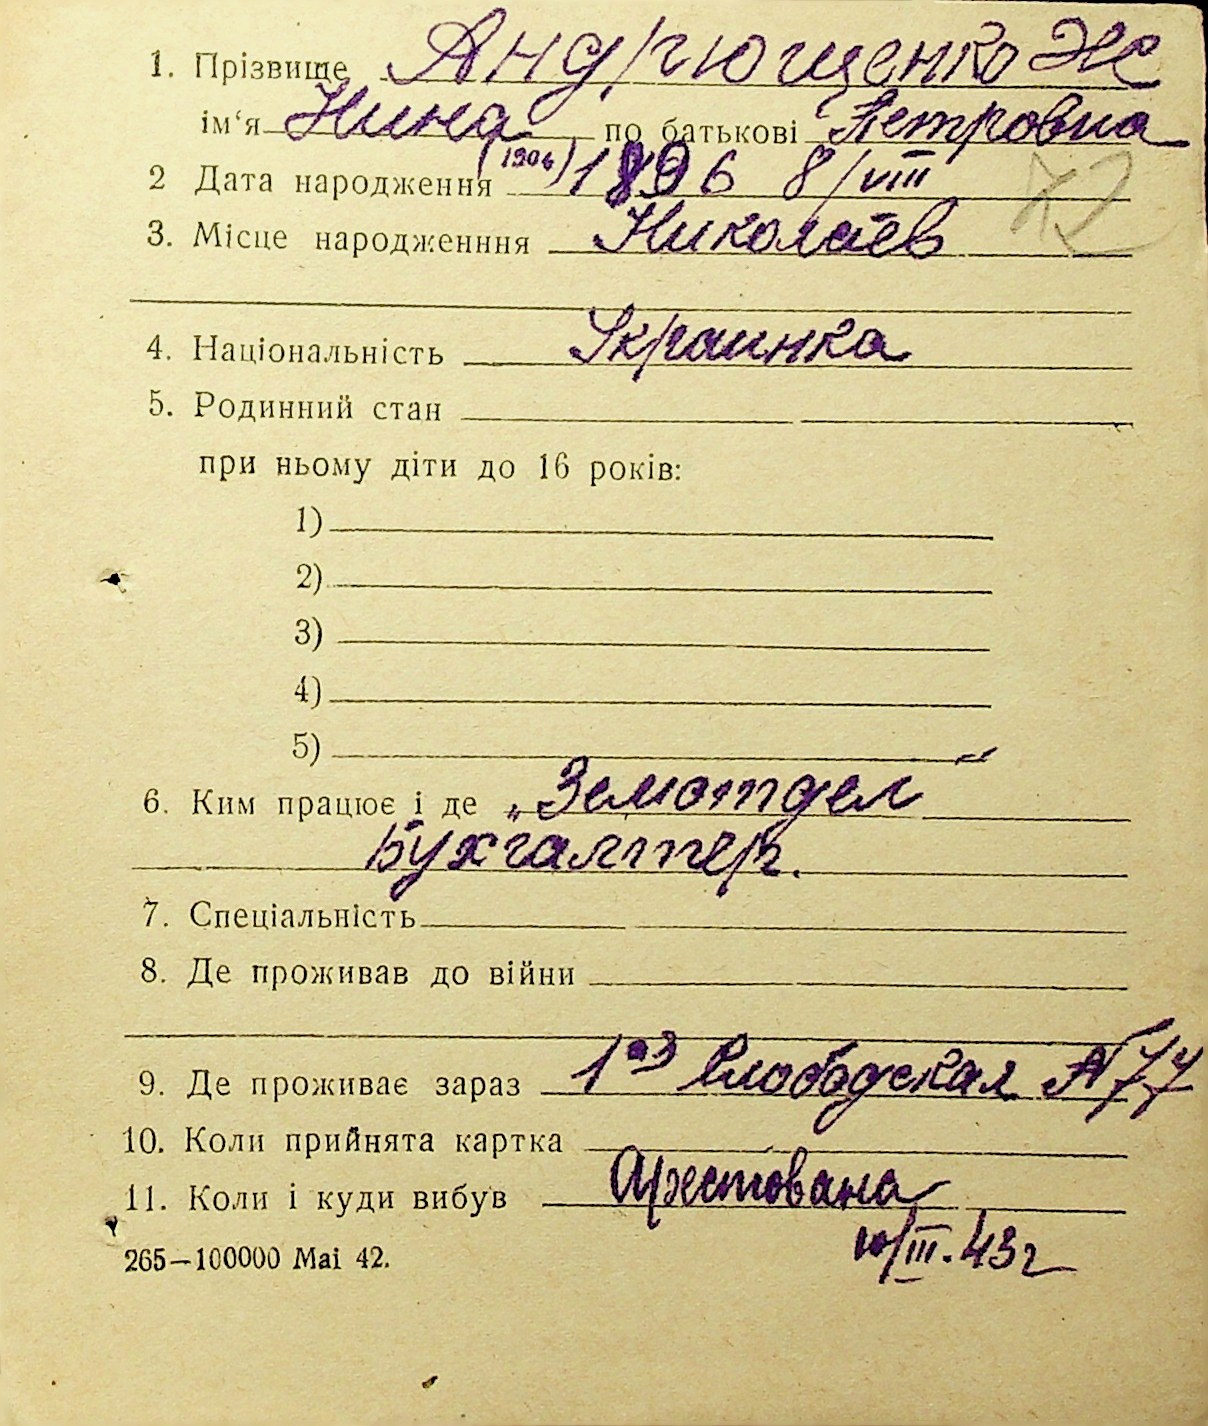 1. Прізвище Андрющенко Ж
ім‘я Нина по батькові Петровна
(1904)
2 Дата народження 1896 8/VIII
72
3. Місце народженння Николаев
4. Національність Украинка
5. Родинний стан
при ньому діти до 16 років:
1)
2)
3)
4)
5)
6. Ким працює і де „Земотдел“
Бухгалтер.
7. Спеціальність
8. Де проживав до війни
9. Де проживає зараз 1ая Слободская № 77
10. Коли прийнята картка
11. Коли і куди вибув Арестована
10/III. 43г
265—100000 Mai 42.